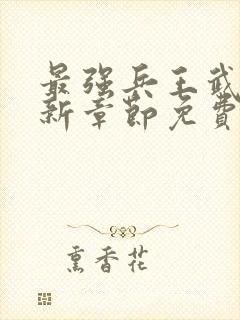 最强兵王武
新章节免费
熏香花